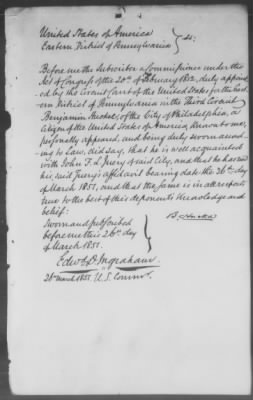 United States of America
Eastern District of Pennsylvania } ss:
Before me the Subscriber a Commissioner under the
Act of Congress of the 20th of February 1812, duly appoint-
ed by the Circuit Court of the United States for the Eas-
tern District of Pennsylvania in the Third Circuit
Benjamin of the City of Philadelphia, a
citizen of the United States of America, known to me,
personally appeared, and being duly sworn accord-
ing to Law, did say, that he is well acquainted
with John F. L of said City, and that he has read
his, said affidavit bearing date the 26th day
of March 1851, and that the same is in all respects
true to the best of this deponents knowledge and
belief:
Sworn and subscribed
before me this 26th day
of March 1851.
B.
Edw. D. Ingraham
26 March 1851. U.S. Commr.